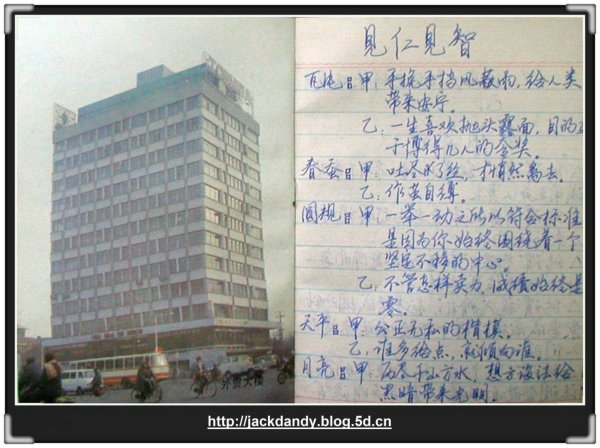 外贸大楼
見仁見智
瓦片 甲:手挽手挡风蔽雨,给人类
带来安宁。
乙:一生喜欢抛头露面,目的在
于博得几人的夸奖。
春蚕 甲:吐尽了丝,才悄然离去。
乙:作茧自缚。
圆规 甲:一举一动之所以符合标准
是因为你始终围绕着一个
坚定不移的中心。
乙:不管怎样卖力,成绩始终是
零。
天平 甲:公正无私的楷模。
乙:谁多给点,就倾向谁。
月亮 甲:历尽千山万水,想方设法给
黑暗带来光明。
http://jackdandy.blog.5d.cn